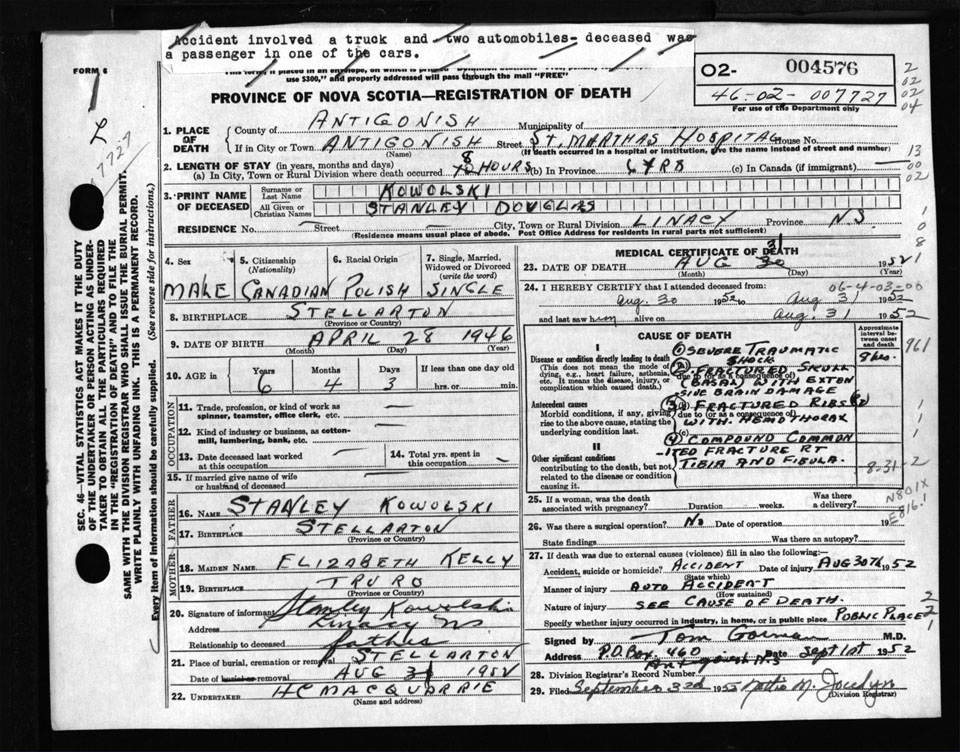 Accident involved a truck and two automobiles- deceased was
a passenger in one of the cars.
FORM 6
use $300," and properly addressed will pass through the mail "FREE"
O2- 004576
46-02-007727
For use of the Department only
PROVINCE OF NOVA SCOTIA—REGISTRATION OF DEATH
2
02
02
04
L
7727
1. PLACE OF DEATH
County of ANTIGONISH Municipality of
If in City or Town ANTIGONISH Street ST. MARTHAS HOSPITAL House No.
(Name) (If death occurred in a hospital or institution, give the name instead of street and number)
13
2. LENGTH OF STAY (in years, months and days)
(a) In City, Town or Rural Division where death occurred 8 HOURS (b) In Province 6 YRS (c) In Canada (if immigrant)
00
02
3. PRINT NAME OF DECEASED
Surname or Last Name KOWOLSKI
All Given or Christian Names STANLEY DOUGLAS
RESIDENCE No. — Street — City, Town or Rural Division LINACY Province N.S.
(Residence means usual place of abode. Post Office Address for residents in rural parts not sufficient)
1
0
8
SEC. 46—VITAL STATISTICS ACT MAKES IT THE DUTY
OF THE UNDERTAKER OR PERSON ACTING AS UNDER-
TAKER TO OBTAIN ALL THE PARTICULARS REQUIRED
IN THE "REGISTRATION OF DEATH" AND TO FILE THE
SAME WITH THE DIVISION REGISTRAR WHO SHALL ISSUE THE BURIAL PERMIT.
WRITE PLAINLY WITH UNFADING INK. THIS IS A PERMANENT RECORD.
Every item of Information should be carefully supplied. (See reverse side for instructions.)
4. Sex
MALE
5. Citizenship
(Nationality)
CANADIAN
6. Racial Origin
POLISH
7. Single, Married,
Widowed or Divorced
(write the word)
SINGLE
8. BIRTHPLACE STELLARTON
(Province or Country)
9. DATE OF BIRTH APRIL 28 1946
(Month) (Day) (Year)
10. AGE in Years Months Days If less than one day old
6 4 3 hrs. or min.
OCCUPATION
11. Trade, profession, or kind of work as
spinner, teamster, office clerk, etc. —
12. Kind of industry or business, as cotton-
mill, lumbering, bank, etc. —
13. Date deceased last worked
at this occupation —
14. Total yrs. spent in
this occupation —
15. If married give name of wife
or husband of deceased
FATHER
16. NAME STANLEY KOWOLSKI
17. BIRTHPLACE STELLARTON
(Province or Country)
MOTHER
18. MAIDEN NAME ELIZABETH KELLY
19. BIRTHPLACE TRURO
(Province or Country)
20. Signature of informant Stanley Kowolski
Address Linacy NS
Relationship to deceased father
21. Place of burial, cremation or removal STELLARTON
Date of burial or removal AUG 31 1952
22. UNDERTAKER HC MACQUARRIE
(Name and address)
MEDICAL CERTIFICATE OF DEATH
23. DATE OF DEATH AUG 30 31 1952
(Month) (Day) (Year)
1
24. I HEREBY CERTIFY that I attended deceased from: 06-4-03-00
Aug. 30 1952 to Aug 31 1952
and last saw him alive on Aug. 31 1952
CAUSE OF DEATH
Approximate
interval between
onset
and death
961
I
Disease or condition directly leading to death
(This does not mean the mode of
dying, e.g., heart failure, asthenia,
etc. It means the disease, injury, or
complication which caused death.)
① SEVERE TRAUMATIC
SHOCK
8 hrs.
② FRACTURED SKULL
(BASAL) WITH EXTEN
SIVE BRAIN DAMAGE
Antecedent causes
Morbid conditions, if any, giving
rise to the above cause, stating the
underlying condition last.
due to (or as a consequence of)
③ FRACTURED RIBS
WITH HEMOTHORAX
(c)
④ COMPOUND COMMIN
-ITED FRACTURE RT
TIBIA AND FIBULA.
II
Other significant conditions
contributing to the death, but not
related to the disease or condition
causing it.
8-31-2
1
1
1
N801X
E816.1
25. If a woman, was the death
associated with pregnancy? Duration weeks. Was there
a delivery?
26. Was there a surgical operation? No Date of operation 19
State findings Was there an autopsy?
27. If death was due to external causes (violence) fill in also the following:
Accident, suicide or homicide? ACCIDENT Date of injury AUG 30TH 1952
(State which)
Manner of injury AUTO ACCIDENT
(How sustained)
Nature of injury SEE CAUSE OF DEATH.
Specify whether injury occurred in industry, in home, or in public place PUBLIC PLACE
2
2
1
Signed by Tom Gorman M.D.
Address P.O. Box, 460 Date Sept 1st 1952
Antigonish N.S
28. Division Registrar's Record Number
29. Filed September 3rd 1952 Kattie M. Jocelyn
(Division Registrar)